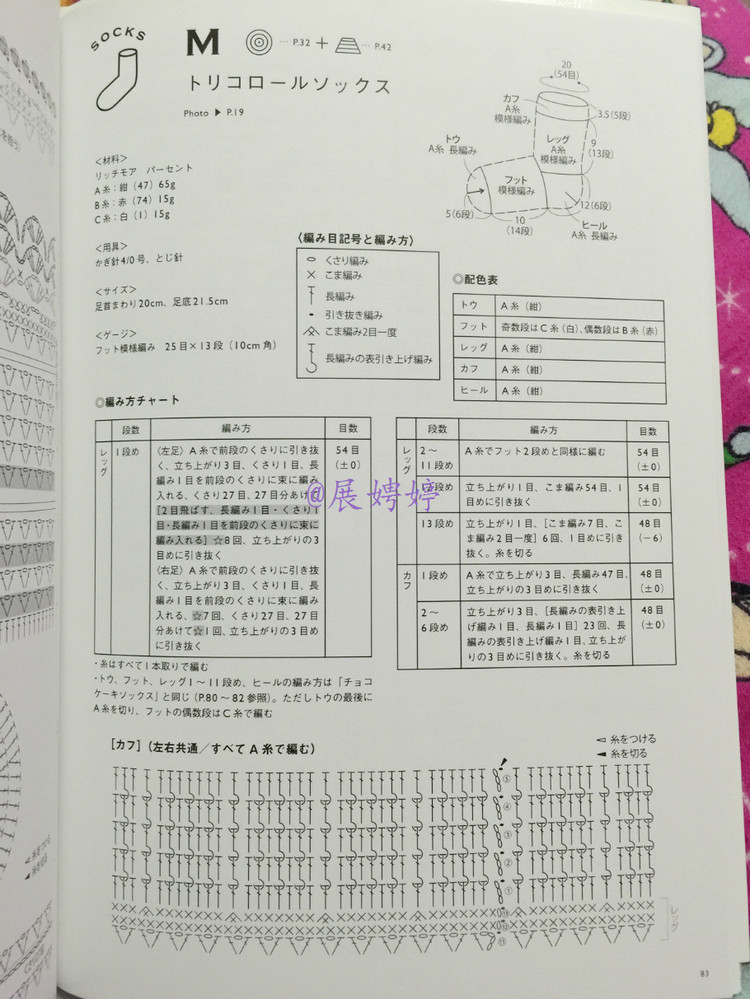 SOCKS
M
… P.32 + … P.42
トリコロールソックス
Photo ▶ P.19
<材料>
リッチモア パーセント
A糸：紺（47）65g
B糸：赤（74）15g
C糸：白（1）15g
<用具>
かぎ針4/0号、とじ針
<サイズ>
足首まわり20cm、足底21.5cm
<ゲージ>
フット模様編み 25目×13段（10cm角）
20
(54目)
カフ
A糸
模様編み
3.5(5段)
トウ
A糸 長編み
レッグ
A糸
模様編み
9
(13段)
フット
模様編み
5(6段)
10
(14段)
12(6段)
ヒール
A糸 長編み
〈編み目記号と編み方〉
くさり編み
こま編み
長編み
引き抜き編み
こま編み2目一度
長編みの表引き上げ編み
◎配色表
トウ A糸（紺）
フット 奇数段はC糸（白）、偶数段はB糸（赤）
レッグ A糸（紺）
カフ A糸（紺）
ヒール A糸（紺）
◎編み方チャート
段数 編み方 目数
レッグ
1段め
〈左足〉A糸で前段のくさりに引き抜
く、立ち上がり3目、くさり1目、長
編み1目を前段のくさりに束に編み
入れる、くさり27目、27目分あけ
[2目飛ばす、長編み1目・くさり1
目・長編み1目を前段のくさりに束に
編み入れる]☆8回、立ち上がりの3
目めに引き抜く
〈右足〉A糸で前段のくさりに引き抜
く、立ち上がり3目、くさり1目、長
編み1目を前段のくさりに束に編み
入れる、☆7回、くさり27目、27目
分あけて☆1回、立ち上がりの3目め
に引き抜く
54目
(±0)
段数 編み方 目数
レッグ
2～
11段め
A糸でフット2段めと同様に編む
54目
(±0)
立ち上がり1目、こま編み54目、1
目めに引き抜く
54目
(±0)
13段め
立ち上がり1目、[こま編み7目、こ
ま編み2目一度]6回、1目めに引き
抜く。糸を切る
48目
(−6)
カフ
1段め
A糸で立ち上がり3目、長編み47目、
立ち上がりの3目めに引き抜く
48目
(±0)
2～
6段め
立ち上がり3目、[長編みの表引き上
げ編み1目、長編み1目]23回、長
編みの表引き上げ編み1目、立ち上が
りの3目めに引き抜く。糸を切る
48目
(±0)
@展娉婷
・糸はすべて1本取りで編む
・トウ、フット、レッグ1～11段め、ヒールの編み方は「チョコ
ケーキソックス」と同じ（P.80～82参照）。ただしトウの最後に
A糸を切り、フットの偶数段はC糸で編む
[カフ]（左右共通／すべてA糸で編む）
糸をつける
糸を切る
⑤
④
③
②
①
⑬
⑫
⑪
レッグ
83